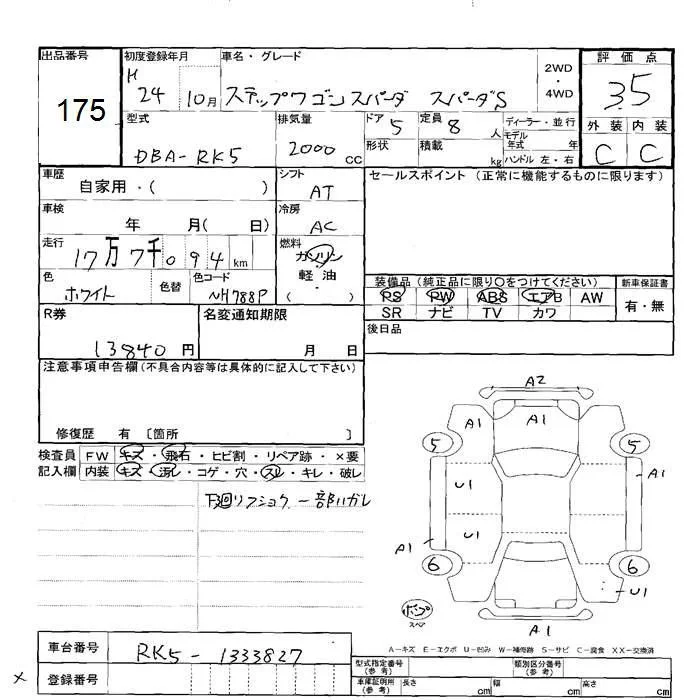 出品番号 初度登録年月 車名・グレード 2WD・4WD 評価点
175 H24 10月 ステップワゴンスパーダ スパーダS 3.5
型式 DBA-RK5 排気量 2000cc ドア 5 定員 8人 ディーラー・並行
形状 積載 kg モデル年式 年 ハンドル 左・右 外装 内装
C C
車歴 自家用・( ) シフト AT セールスポイント (正常に機能するものに限ります)
車検 年 月( 日) 冷房 AC
走行 17万7千094km 燃料 ガソリン・軽油 ( )
色 ホワイト 色替 色コード NH788P
装備品 (純正品に限り○をつけてください) 新車保証書
PS PW ABS エアB AW 有・無
SR ナビ TV カワ
R券 13840円 名変通知期限 月 日 後日品
注意事項申告欄(不具合内容等は具体的に記入して下さい)
修復歴 有 〔箇所 〕
検査員 FW キズ・飛石・ヒビ割・リペア跡・×要
記入欄 内装 キズ・汚レ・コゲ・穴・スレ・キレ・破レ
下廻リフショク 一部ハガレ
A2
A1 A1
5 5
U1 A1
U1
A1
6 6
U1
スペア
A1
A-キズ E-エクボ U-凹み W-補修跡 S-サビ C-腐食 XX-交換済
車台番号 RK5-1333827
登録番号
型式指定番号(参考) 類別区分番号(参考)
車庫証明用(参考) 長さ cm 幅 cm 高さ cm
×